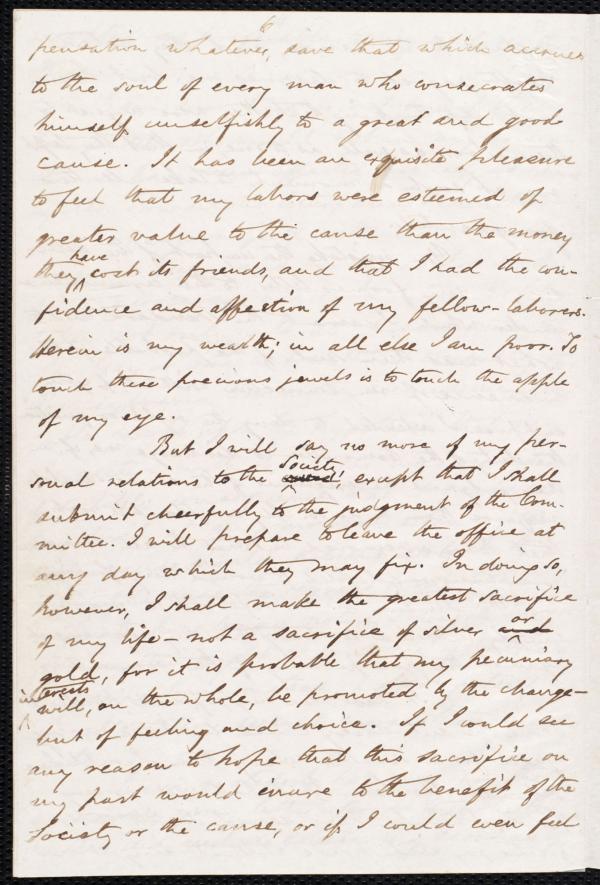 6
pensation whatever, save that which accrues
to the soul of every man who consecrates
himself unselfishly to a great and good
cause. It has been an exquisite pleasure
to feel that my labors were esteemed of
greater value to the cause than the money
they have cost its friends, and that I had the con-
fidence and affection of my fellow-laborers.
Herein is my wealth; in all else I am poor. To
touch these precious jewels is to touch the apple
of my eye.
But I will say no more of my per-
sonal relations to the Society, except that I shall
submit cheerfully to the judgment of the Com-
mittee. I will prepare to leave the office at
any day which they may fix. In doing so,
however, I shall make the greatest sacrifice
of my life—not a sacrifice of silver and or
gold, for it is probable that my pecuniary
interests will, on the whole, be promoted by the change—
but of feeling and choice. If I could see
any reason to hope that this sacrifice on
my part would inure to the benefit of the
Society or the cause, or if I could even feel